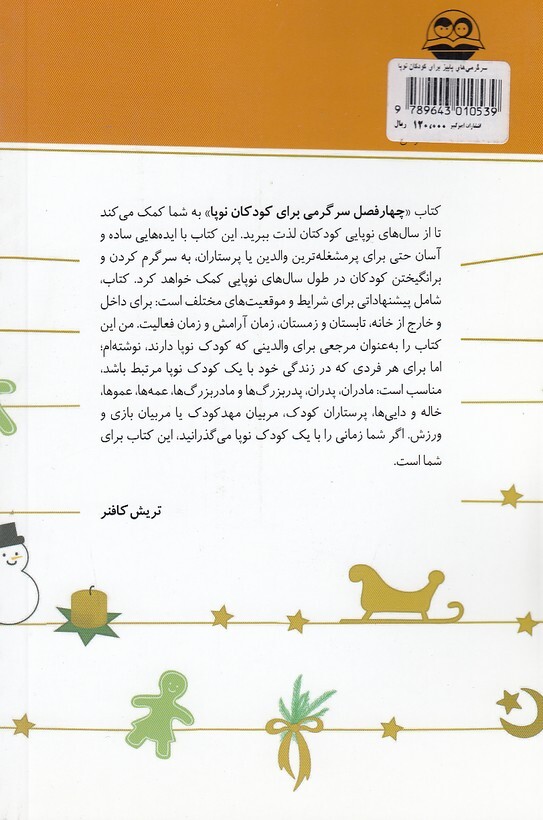 سرگرمی‌های پاییز برای کودکان نوپا
9 789643 010539
انتشارات امیرکبیر ۱۲۰,۰۰۰ ریال
کتاب «چهارفصل سرگرمی برای کودکان نوپا» به شما کمک می‌کند
تا از سال‌های نوپایی کودکتان لذت ببرید. این کتاب با ایده‌هایی ساده و
آسان حتی برای پرمشغله‌ترین والدین یا پرستاران، به سرگرم کردن و
برانگیختن کودکان در طول سال‌های نوپایی کمک خواهد کرد. کتاب،
شامل پیشنهاداتی برای شرایط و موقعیت‌های مختلف است: برای داخل
و خارج از خانه، تابستان و زمستان، زمان آرامش و زمان فعالیت. من این
کتاب را به‌عنوان مرجعی برای والدینی که کودک نوپا دارند، نوشته‌ام؛
اما برای هر فردی که در زندگی خود با یک کودک نوپا مرتبط باشد،
مناسب است: مادران، پدران، پدربزرگ‌ها و مادربزرگ‌ها، عمه‌ها، عموها،
خاله و دایی‌ها، پرستاران کودک، مربیان مهدکودک یا مربیان بازی و
ورزش. اگر شما زمانی را با یک کودک نوپا می‌گذرانید، این کتاب برای
شما است.
تریش کافنر